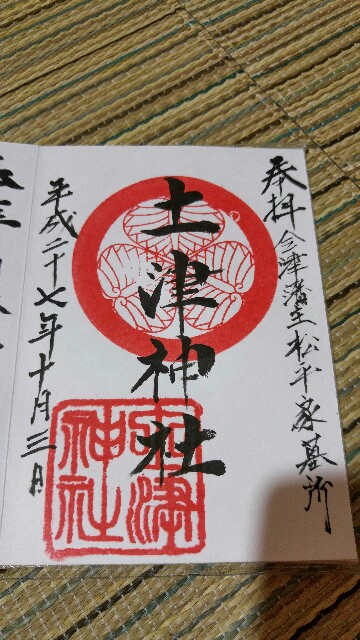 奉拝 会津藩主松平家墓所
土津神社
土津神社
平成二十七年十月三日